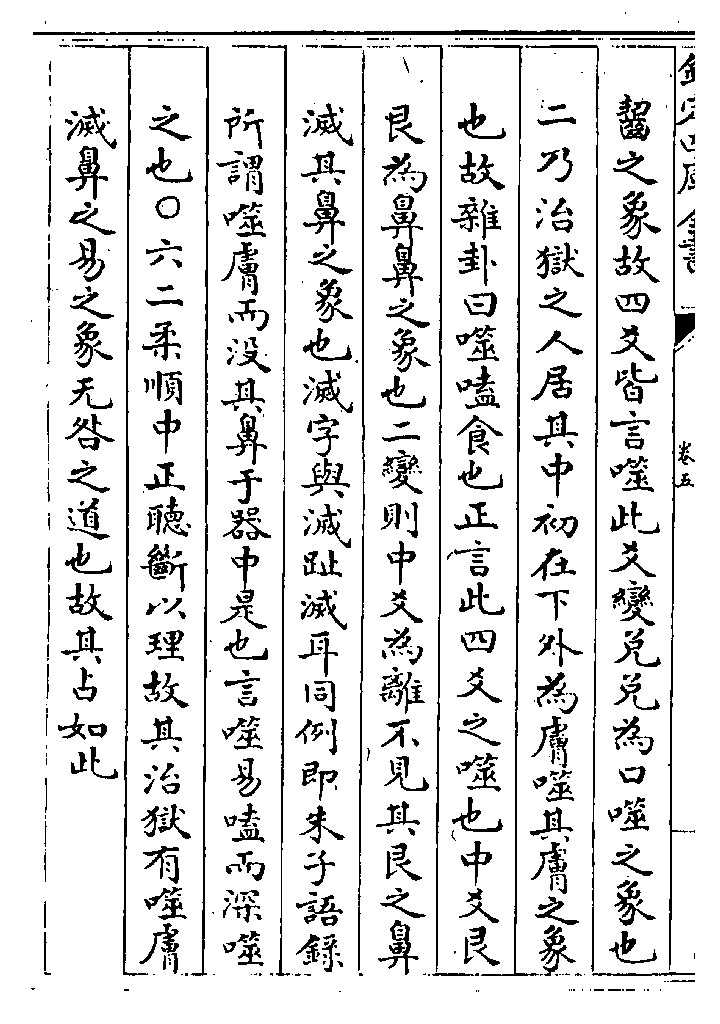 欽定四庫全書
卷五
齧之象故四爻皆言噬此爻變兑兑為口噬之象也
二乃治獄之人居其中初在下外為膚噬其膚之象
也故雜卦曰噬嗑食也正言此四爻之噬也中爻艮
艮為鼻鼻之象也二變則中爻為離不見其艮之鼻
滅其鼻之象也滅字與滅趾滅耳同例即朱子語錄
所謂噬膚而没其鼻于器中是也言噬易嗑而深噬
之也〇六二柔順中正聽斷以理故其治獄有噬膚
滅鼻之易之象无咎之道也故其占如此